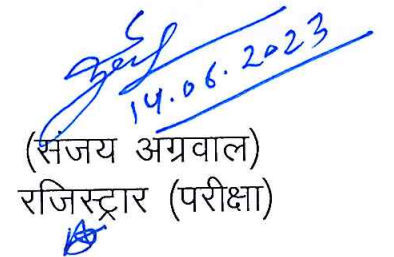 14.06.2023
(संजय अग्रवाल)
रजिस्ट्रार (परीक्षा)